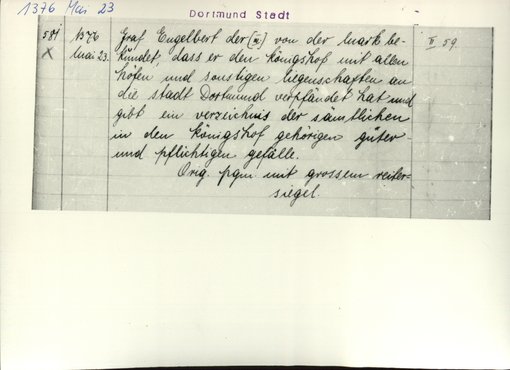 1376 Mai 23
Dortmund Stadt
581 1376 Graf Engelbert der [III] von der Mark be-
X Mai 23. kundet, dass er den königshof mit allen II 59.
höfen und sonstigen liegenschaften an
die stadt Dortmund verpfändet hat und
gibt ein verzeichnis der sämtlichen
in den königshof gehörigen güter
und pflichtigen gefälle.
Orig. pgm. mit grossem reiter-
siegel.